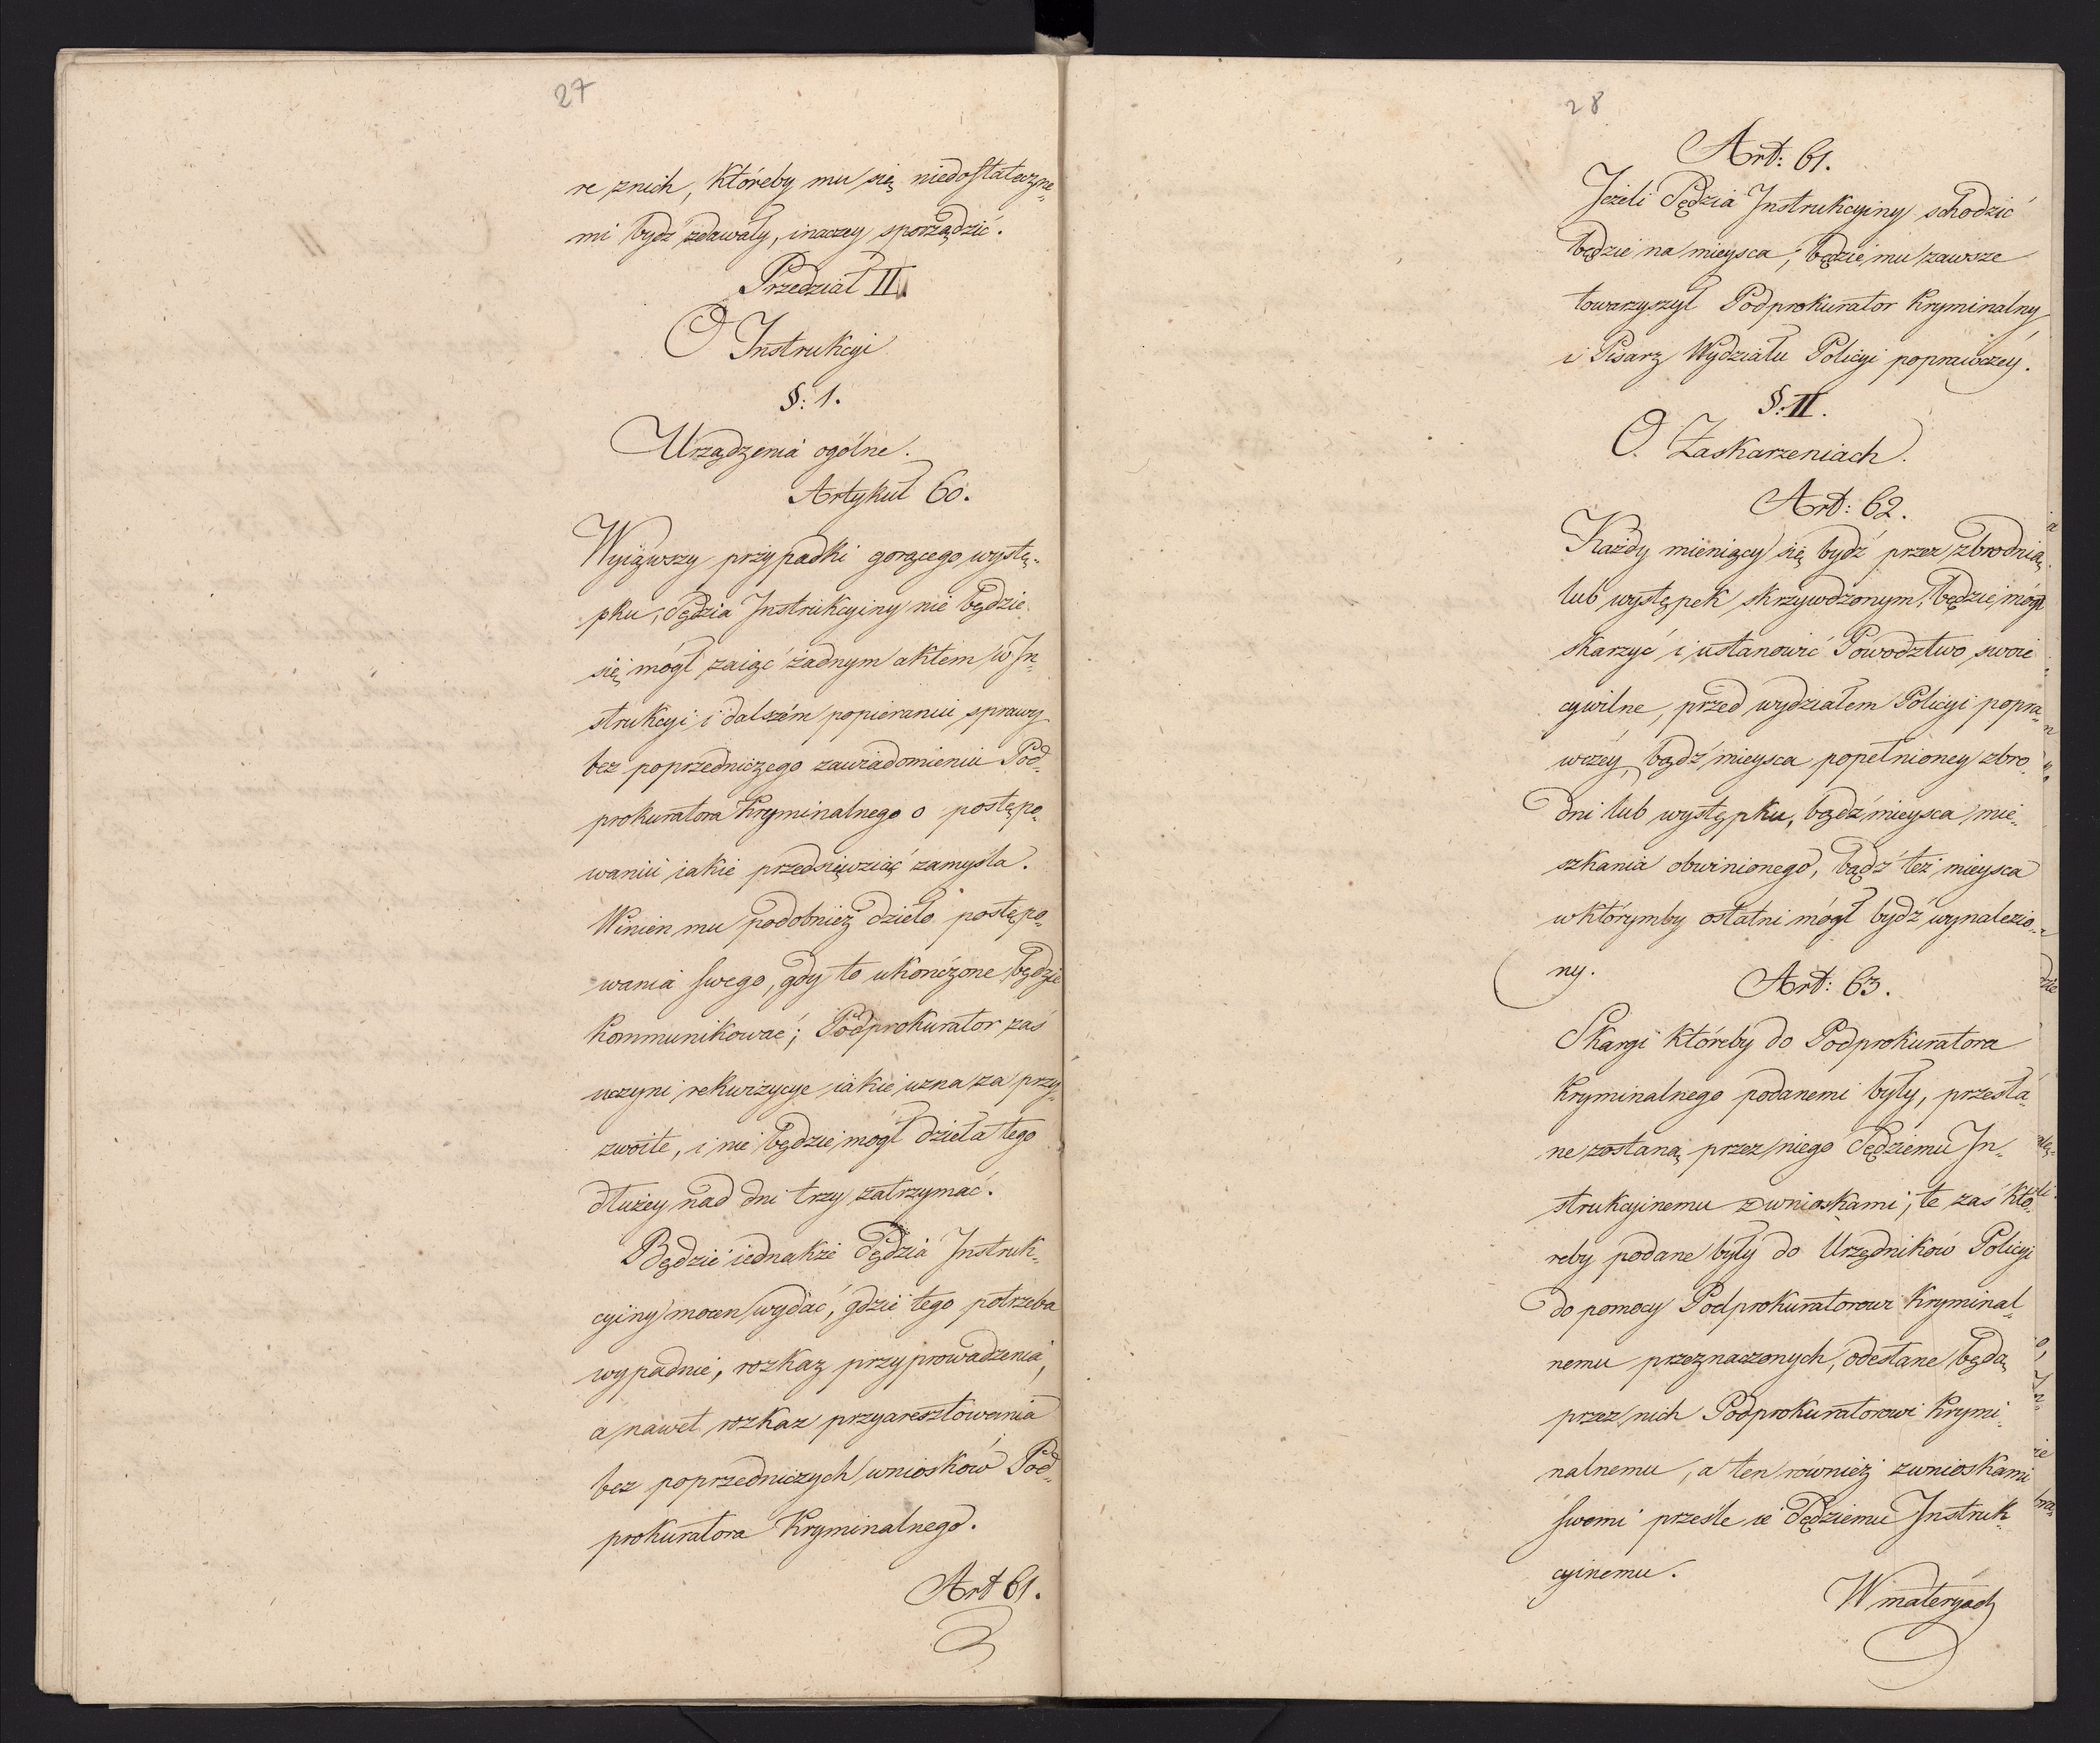 27
re znich, któreby mu się niedostateczne„
mi bydź zdawały, inaczey sporządzić.
Przedział II
O Instrukcyi
§: 1.
Urządzenia ogólne.
Artykuł 60.
Wyiąwszy przypadki gorącego wystę„
pku, Sędzia Instrukcyiny nie będzie
się mógł zaiąć żadnym aktem w In„
strukcyi i dalszém popieraniu sprawy
bez poprzedniczego zawiadomieniu Pod„
prokuratora Kryminalnego o postępo„
waniu iakie przedsięwziąć zamyśla.
Winien mu podobnież dzieło postępo„
wania swego, gdy to ukończone będzie
kommunikować; Podprokurator zaś
uczyni rekwizycye iakie uzna za przy„
zwoite, i nie będzie mógł dzieła tego
dłużey nad dni trzy zatrzymać.
Będzie iednakże Sędzia Instruk„
cyiny mocen wydać, gdzie tego potrzeba
wypadnie, rozkaz przyprowadzenia,
a nawet rozkaz przyaresztowania
bez poprzedniczych wniosków Pod„
prokuratora Kryminalnego.
Art 61.
28
Art: 61.
Jeżeli Sędzia Instrukcyiny schodzić
będzie na mieysca, będzie mu zawsze
towarzyszył Podprokurator Kryminalny
i Pisarz Wydziału Policyi poprawczey.
§: II.
O Zaskarzeniach.
Art: 62.
Każdy mieniący się bydź przez zbrodnią
lub występek skrzywdzonym, będzie mógł
skarzyć i ustanowić Powództwo swoie
cywilne, przed wydziałem Policyi popra„
wczéy, bądź mieysca popełnioney zbro„
dni lub występku, bądź mieysca mie„
szkania obwinionego, bądź też mieysca
w którymby ostatni mógł bydź wynalezio„
ny.
Art: 63.
Skargi któreby do Podprokuratora
Kryminalnego podanemi były, przesła„
ne zostaną przez niego Sędziemu In„
strukcyinemu z wnioskami; te zaś któ„
reby podane były do Urzędników Policyi
do pomocy Podprokuratorowi Kryminal„
nemu przeznaczonych, odesłane będą
przez nich Podprokuratorowi Krymi„
nalnemu, a ten również z wnioskami
swemi prześle ie Sędziemu Instruk„
cyinemu.
W materyach